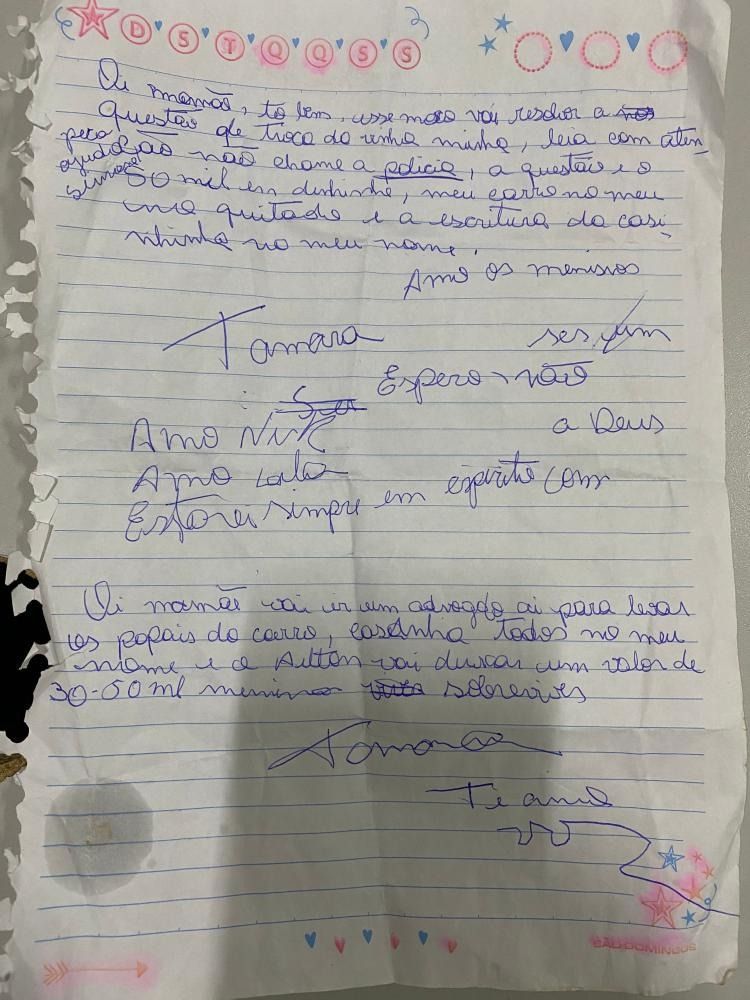 D S T Q Q S S
Oi mamãe, to bem, esse moço vai resolver a
questão de troca da vinha minha, leia com aten
peço ção não chame a policia, a questão e o
ajuda
50 mil em dinhinhe, meu carro no meu
quitado e a escritura da casi
nhinha no meu nome.
Amo os meninos
Tamara
Espero não
a Deus
Amo Nick
Amo
Estarei simpre em espirito com
Oi mamãe vai ir um advogdo ai para levar
os papais do carro, casinha todos no meu
nome e o Ailton vai duscar um valor de
30-50 ml sobrevives
Tamara
Te amo
SÃO DOMINGOS